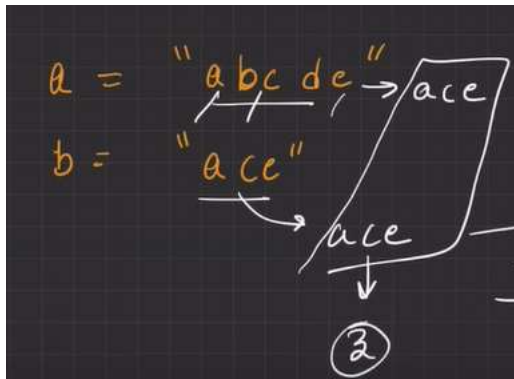 a = "abcde" → ace
b = "ace"
ace
3